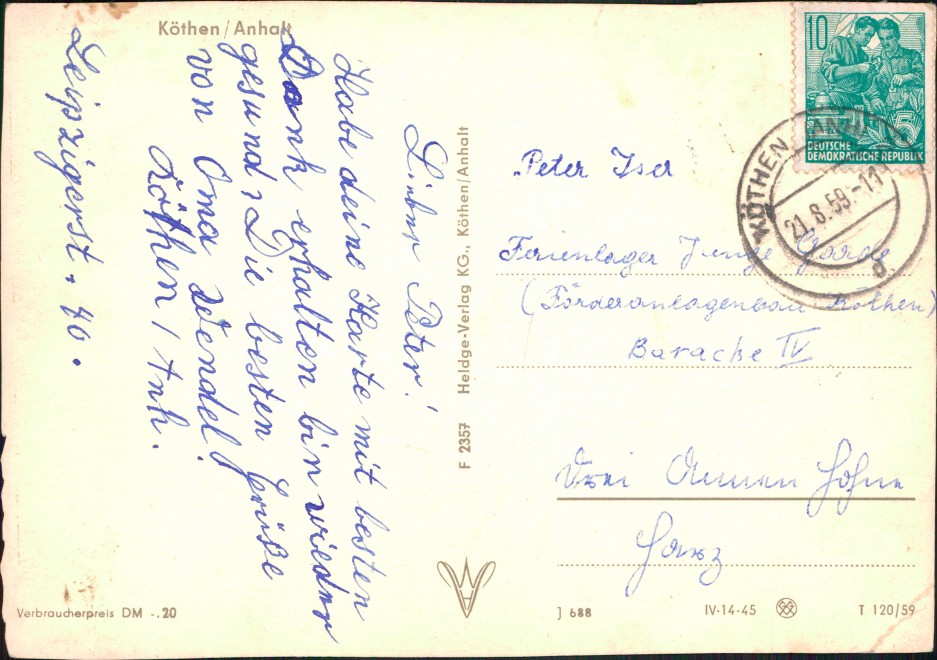 Köthen/Anhalt
Lieber Peter!
Habe deine Karte mit besten
Dank erhalten bin wieder
gesund, Die besten Grüße
von Oma Wendel!
Köthen / Anh.
Leipzigerst. 40.
F 2357 Heldge-Verlag KG., Köthen/Anhalt
10
5
DEUTSCHE
DEMOKRATISCHE REPUBLIK
KÖTHEN (ANHALT)
21.8.59.-11
d
Peter Iser
Ferienlager Junge Garde
(Förderanlagenbau Köthen)
Baracke IV
Drei Annen Hohne
Harz
Verbraucherpreis DM -.20
J 688
IV-14-45
T 120/59